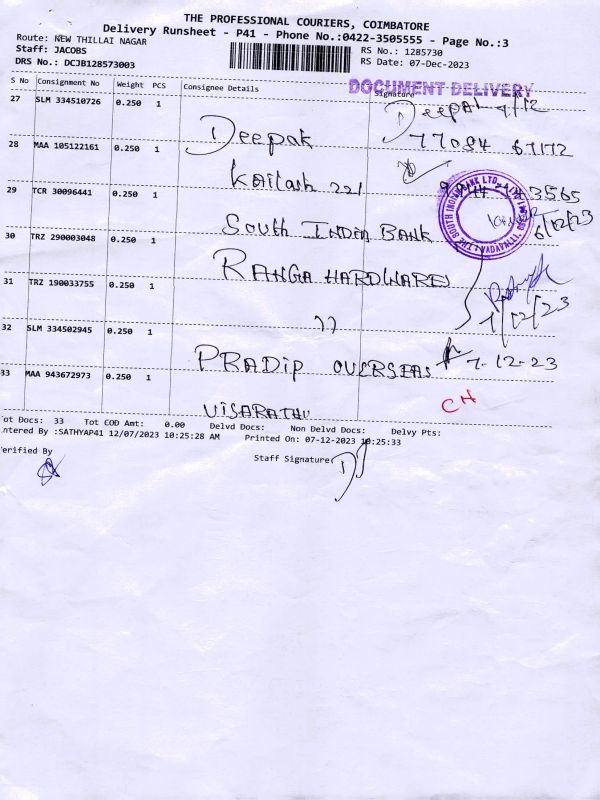 THE PROFESSIONAL COURIERS, COIMBATORE
Delivery Runsheet - P41 - Phone No.:0422-3505555 - Page No.:3
Route: NEW THILLAI NAGAR
Staff: JACOBS
DRS No.: DCJB128573003
RS No.: 1285730
RS Date: 07-Dec-2023
S No Consignment No Weight PCS Consignee Details Signature
DOCUMENT DELIVERY
27 SLM 334510726 0.250 1 Deepak Deepak
28 MAA 105122161 0.250 1 Kailash 221
29 TCR 30096441 0.250 1 South INDIA BANK
SOUTH INDIAN BANK LTD.
VADAVALLI
30 TRZ 290003048 0.250 1 RANGA HARDWARES
31 TRZ 190033755 0.250 1 11 7/12/23
32 SLM 334502945 0.250 1 PRADIP OVERSEAS 7-12-23
33 MAA 943672973 0.250 1 VISARATHU CH
ot Docs: 33 Tot COD Amt: 0.00 Delvd Docs: Non Delvd Docs: Delvy Pts:
ntered By :SATHYAP41 12/07/2023 10:25:28 AM Printed On: 07-12-2023 10:25:33
erified By Staff Signature